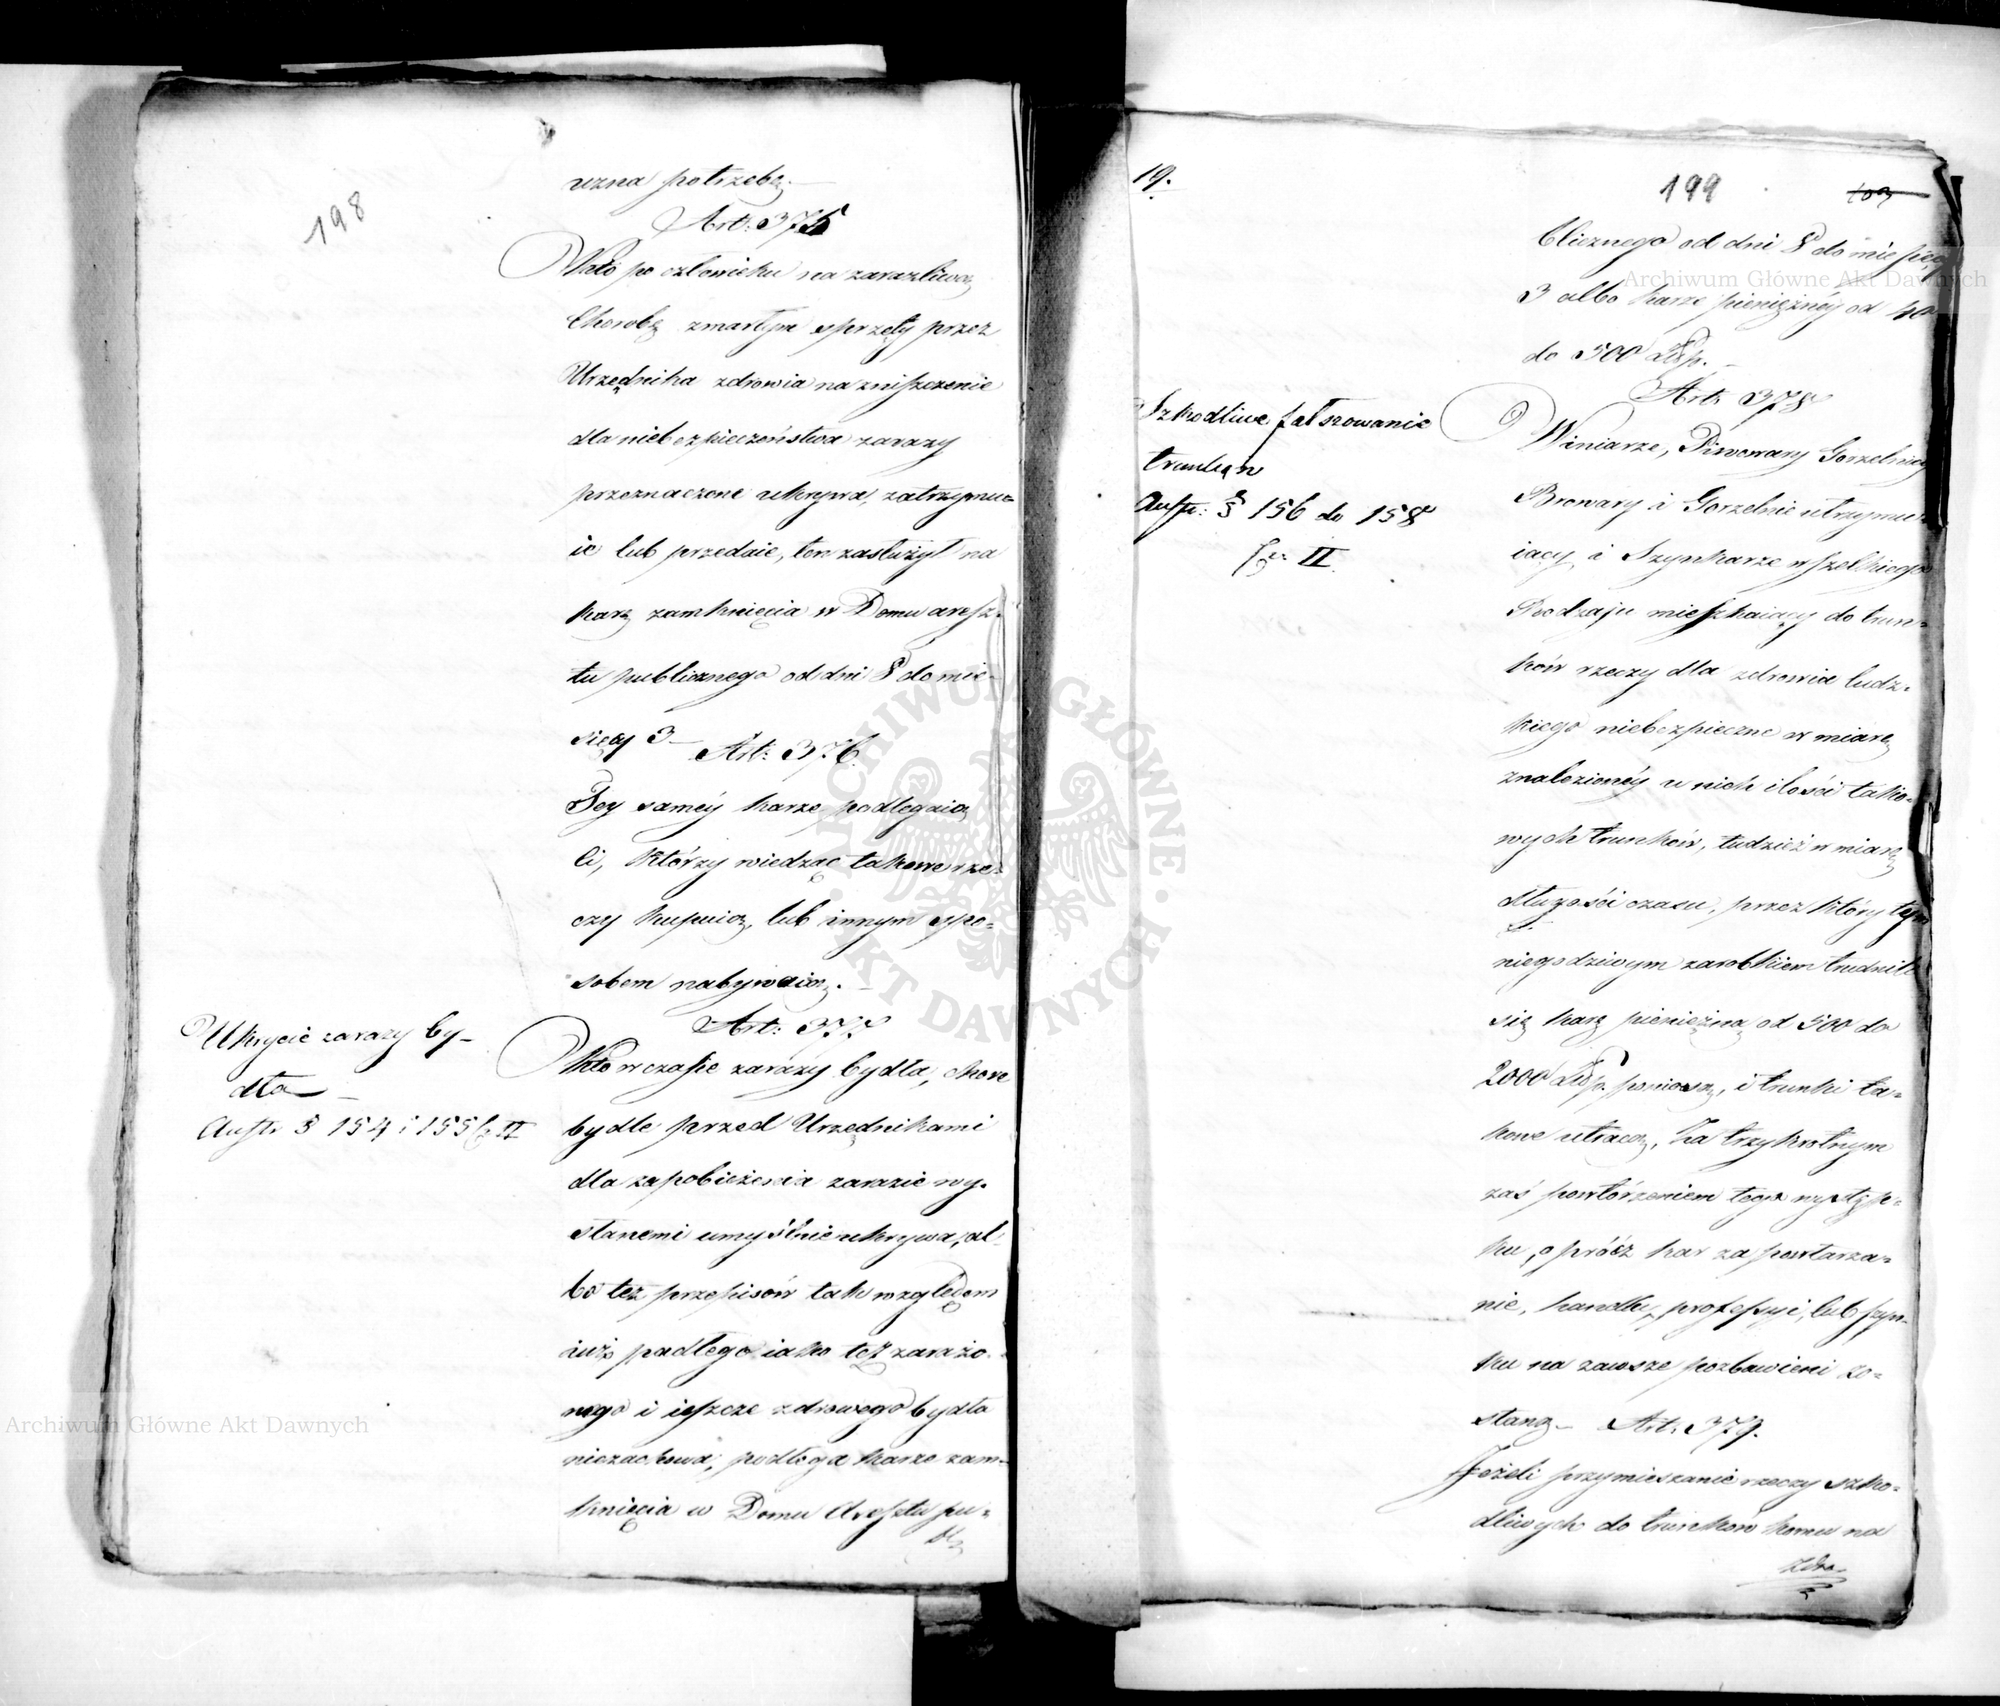 198
uzna potrzebę.
Art: 375
Kto po człowieku na zaraźliwą
Chorobę zmarłym sprzęty przez
Urzędnika zdrowia na zniszczenie
dla niebezpieczeństwa zarazy
przeznaczone ukrywa, zatrzymu=
ie lub przedaie, ten zasłużył na
karę zamknięcia w Domu aresz=
tu publicznego od dni 8 do mie-
sięcy 3 Art: 376.
Tey saméy karze podlegaią
ci, którzy wiedząc takowe rze=
czy kupuią, lub innym spo=
sobem nabywaią.
Art: 377
Ukrycie zarazy by-
dła
Austr § 154 i 155 Cz II
Kto w czasie zarazy bydła, chore
bydle przed Urzędnikami
dla zapobieżenia zarazie wy-
słanemi umyślnie ukrywa, al-
bo też przepisów tak względem
iuż padłego iako też zarażo-
nego i ieszcze zdrowego bydła
niezachowa, podlega karze zam-
knięcia w Domu Aresztu pu=
bli
19.
199
103
blicznego od dni 8 do miesięcy
3 albo karze pieniężnéy od 40
do 500 Złp.
Art: 378
Szkodliwe fałszowanie
trunków
Austr: § 156 do 158
Cz II.
Winiarze, Piwowary Gorzelnicy
Browary i Gorzelnie utrzymu=
iący i Szynkarze wszelkiego
Rodzaju mieszkaiący do trun=
ków rzeczy dla zdrowia ludz=
kiego niebezpieczne w miarę
znalezionéy u nich ilości tako=
wych trunków, tudzież w miarę
długości czasu, przez który tym
niegodziwym zarobkiem trudnili
się karę pieniężną od 500 do
2000 Złp. poniosą, i trunki ta=
kowe utracą, Za trzykrotnym
zaś powtórzeniem tego występ=
ku, oprócz kar za powtarza=
nie, handlu, professyi, lub szyn=
ku na zawsze pozbawieni zo=
staną Art: 379.
Jeżeli przymieszanie rzeczy szko=
dliwych do trunków komu na
zdro-
Archiwum Główne Akt Dawnych
Archiwum Główne Akt Dawnych
ARCHIWUM GŁÓWNE AKT DAWNYCH